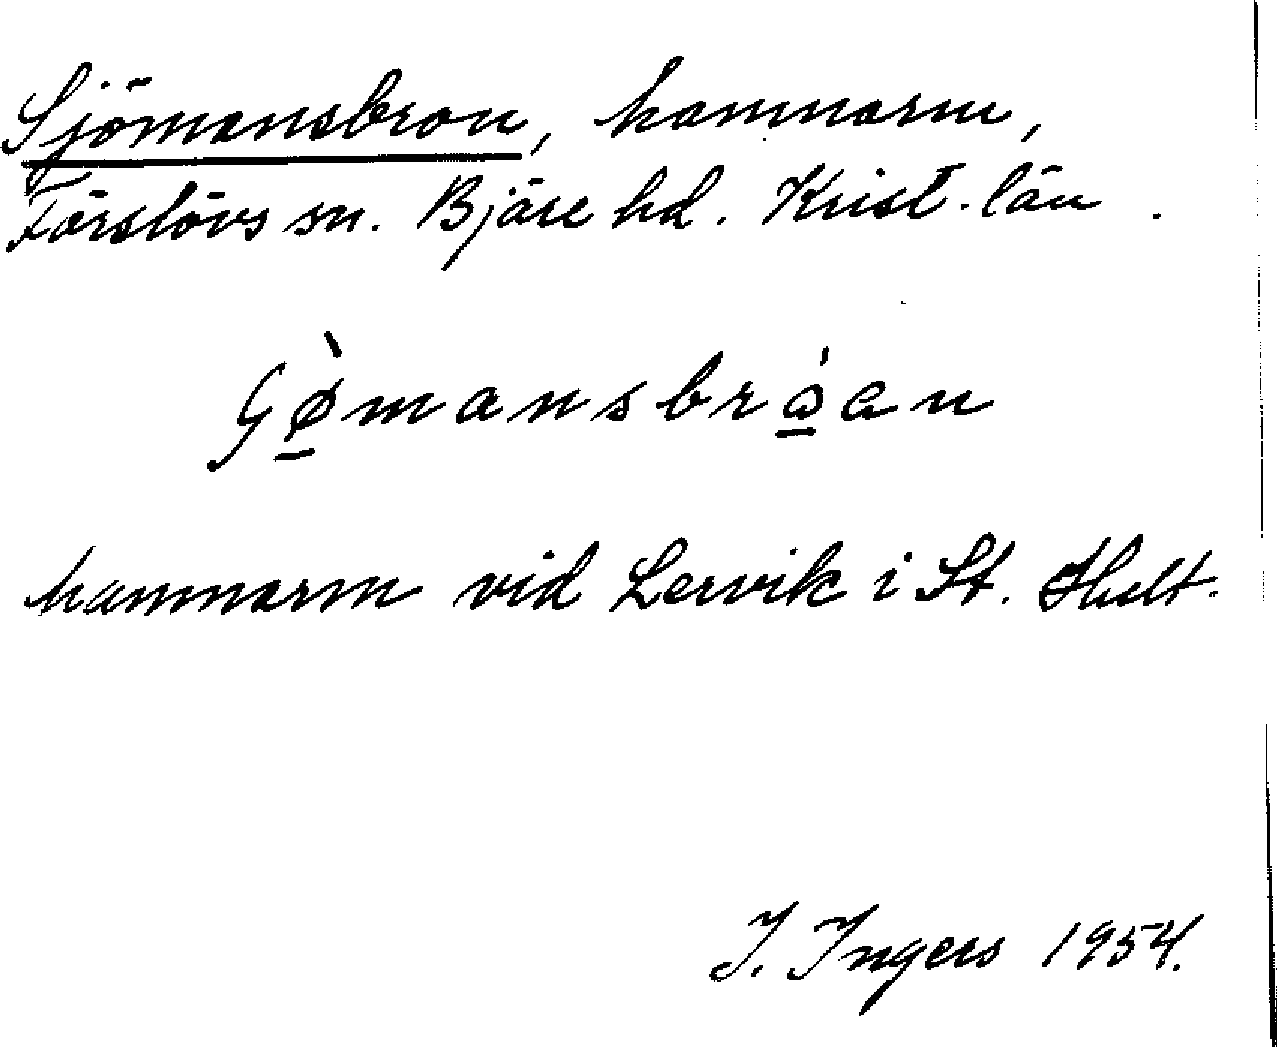 Sjömansbron, hamnarm,
Förslövs sn. Bjäre hd. Krist. län.
hamnarm vid Lervik i St. Hult.
I. Ingers 1954.